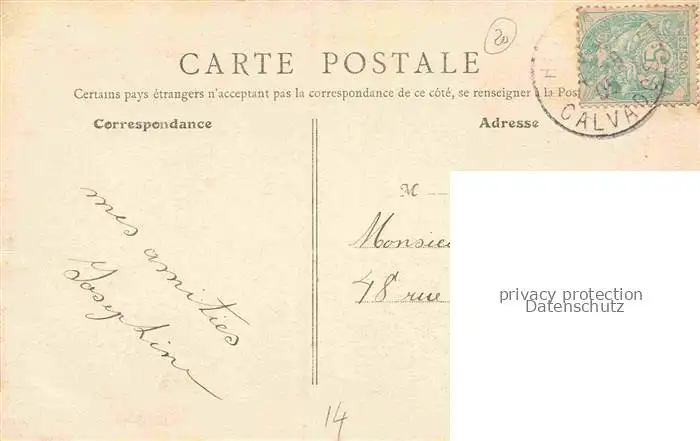 20
CARTE POSTALE
Certains pays étrangers n'acceptant pas la correspondance de ce côté, se renseigner à la Pos
Correspondance
Adresse
CALVADOS
5
M
Monsie
48 rue
privacy protection
Datenschutz
mes amities
Josephine
14